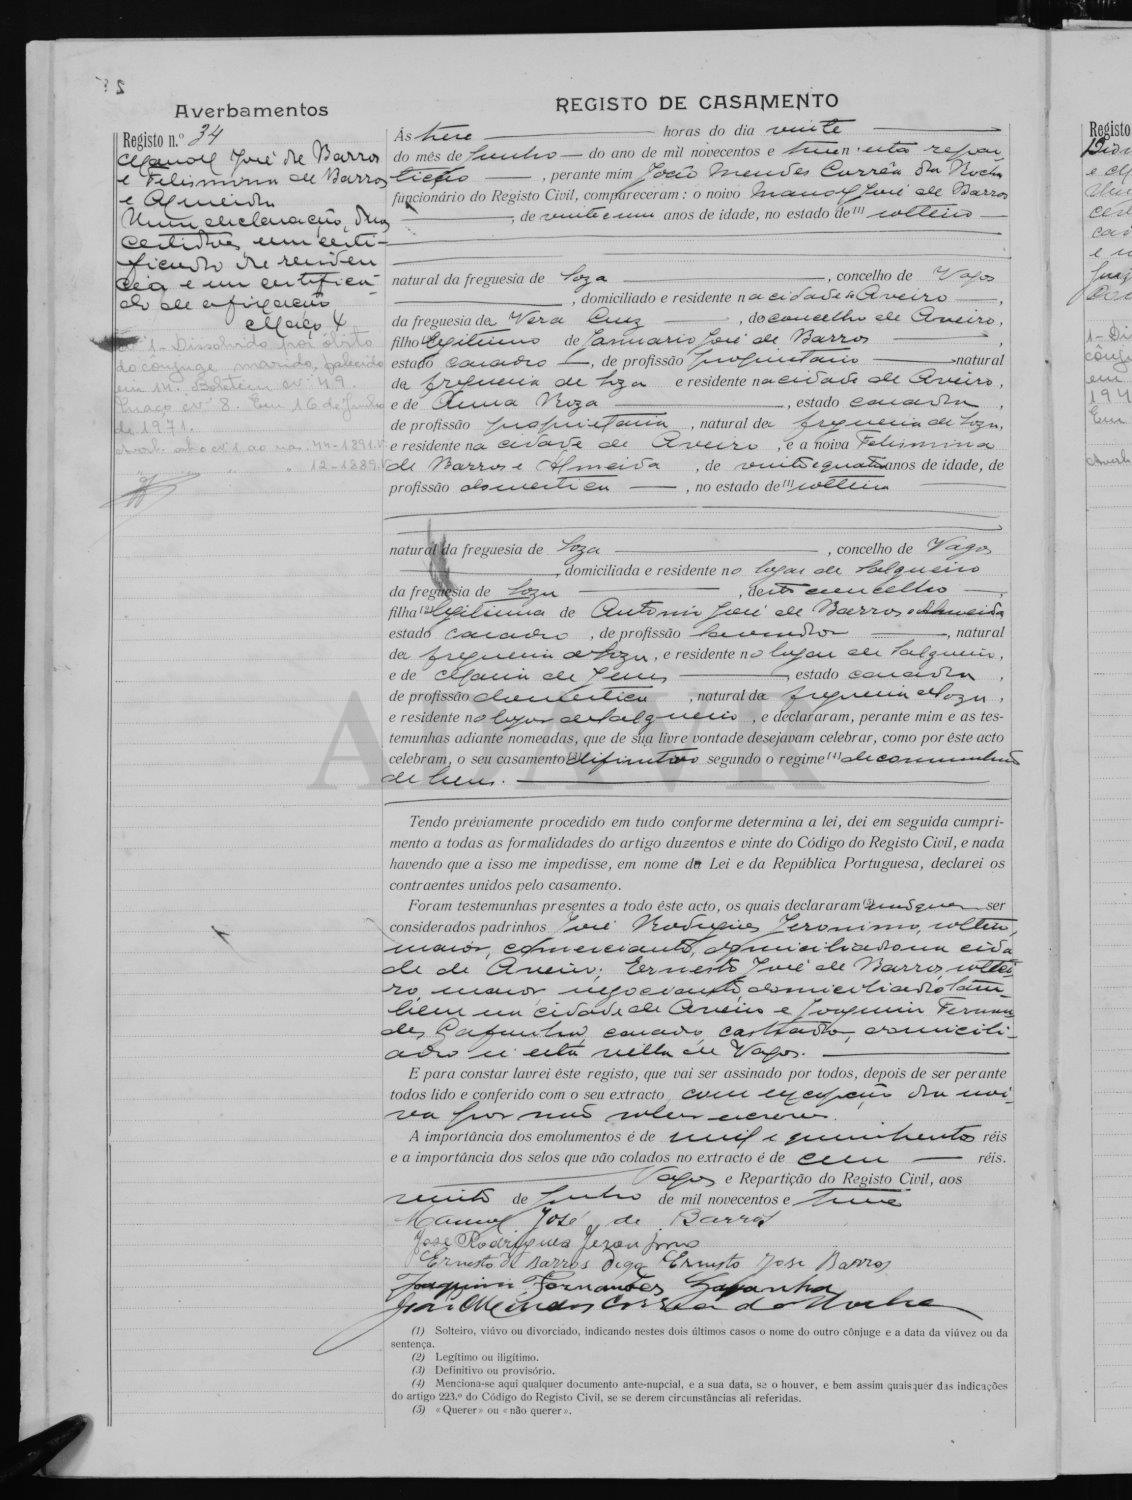 Averbamentos
Registo n.º 34
Manoel José de Barros
e Felismina de Barros
e Almeida
Uma declaração, duas
certidões, um certi-
ficado de residen
cia e um certifica-
do de afixação
Maço 4
Av. 1 - Dissolvido por óbito
do cônjuge marido, falecido
em 14. Boletim nº 49.
Maço nº 8. Em 16 de Junho
de 1971.
REGISTO DE CASAMENTO
Às treze horas do dia vinte
do mês de Junho do ano de mil novecentos e treze n'esta repar-
tição, perante mim João Mendes Corrêa da Rocha
funcionário do Registo Civil, compareceram: o noivo Manoel José de Barros
, de vinte e um anos de idade, no estado de (1) solteiro
natural da freguesia de Soza, concelho de Vagos
, domiciliado e residente na cidade de Aveiro,
da freguesia da Vera Cruz, do concelho de Aveiro,
filho legitimo de Januario José de Barros,
estado casado, de profissão proprietario natural
da freguesia de Soza e residente na cidade de Aveiro,
e de Anna Roza, estado casada,
de profissão proprietaria, natural da freguesia de Soza,
e residente na cidade de Aveiro, e a noiva Felismina
de Barros e Almeida, de vinte e quatro anos de idade, de
profissão domestica, no estado de (1) solteira
natural da freguesia de Soza, concelho de Vagos
, domiciliada e residente no logar de Salgueiro
da freguesia de Soza, deste concelho,
filha (2) legitima de Antonio José de Barros e Almeida
estado casado, de profissão lavrador, natural
da freguesia de Soza, e residente no logar de Salgueiro,
e de Maria de Jesus, estado casada,
de profissão domestica, natural da freguesia de Soza,
e residente no logar de Salgueiro, e declararam, perante mim e as tes-
temunhas adiante nomeadas, que de sua livre vontade desejavam celebrar, como por êste acto
celebram, o seu casamento (3) difinitivo segundo o regime (4) de communhão
de bens.
Tendo préviamente procedido em tudo conforme determina a lei, dei em seguida cumpri-
mento a todas as formalidades do artigo duzentos e vinte do Código do Registo Civil, e nada
havendo que a isso me impedisse, em nome da Lei e da República Portuguesa, declarei os
contraentes unidos pelo casamento.
Foram testemunhas presentes a todo êste acto, os quais declararam (5) não querer ser
considerados padrinhos José Rodrigues Jeronimo, solteiro,
maior, comerciante, domiciliado na cida
de de Aveiro; Ernesto José de Barros, soltei-
ro, maior negociante, domiciliado tam-
bem na cidade de Aveiro e Joaquim Fernan
des Gafanha, casado, domicili-
ado n'esta villa de Vagos.
E para constar lavrei êste registo, que vai ser assinado por todos, depois de ser perante
todos lido e conferido com o seu extracto com excepção da noi-
va por não saber escrever.
A importância dos emolumentos é de mil e quinhentos réis
e a importância dos selos que vão colados no extracto é de cem réis.
Vagos e Repartição do Registo Civil, aos
vinte de Junho de mil novecentos e treze
Manoel José de Barros
José Rodrigues Jeronimo
Ernesto de Barros digo Ernesto José Barros
Joaquim Fernandes Gafanha
João Mendes Correia da Rocha
(1) Solteiro, viúvo ou divorciado, indicando nestes dois últimos casos o nome do outro cônjuge e a data da viúvez ou da
sentença.
(2) Legítimo ou iligítimo.
(3) Definitivo ou provisório.
(4) Menciona-se aqui qualquer documento ante-nupcial, e a sua data, se o houver, e bem assim quaisquer das indicações
do artigo 223.º do Código do Registo Civil, se se derem circunstâncias ali referidas.
(5) «Querer» ou «não querer».
ADAVR
Registo